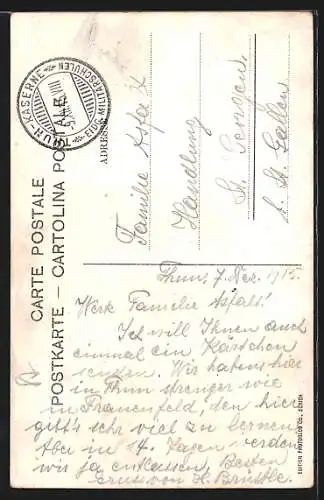 CARTE POSTALE
POSTKARTE — CARTOLINA POSTALE
THUN-KASERNE
EIDG. MILITÄRSCHULEN
ADRESSE
Familie Asfalt
Handlung
St. Georgen
b. St. Gallen
Thun, 7. Dez. 1915.
Werte Familie Asfalt!
Ich will Ihnen auch
einmal ein Kärtchen
senden. Wir habens hier
in Thun strenger wie
in Frauenfeld, den hier
gitt's sehr viel zu lernen,
Aber in 14. Tagen werden
wir ja entlassen, Besten
Gruss von H. Brüstle.
EDITION PHOTOGLOB CO., ZÜRICH